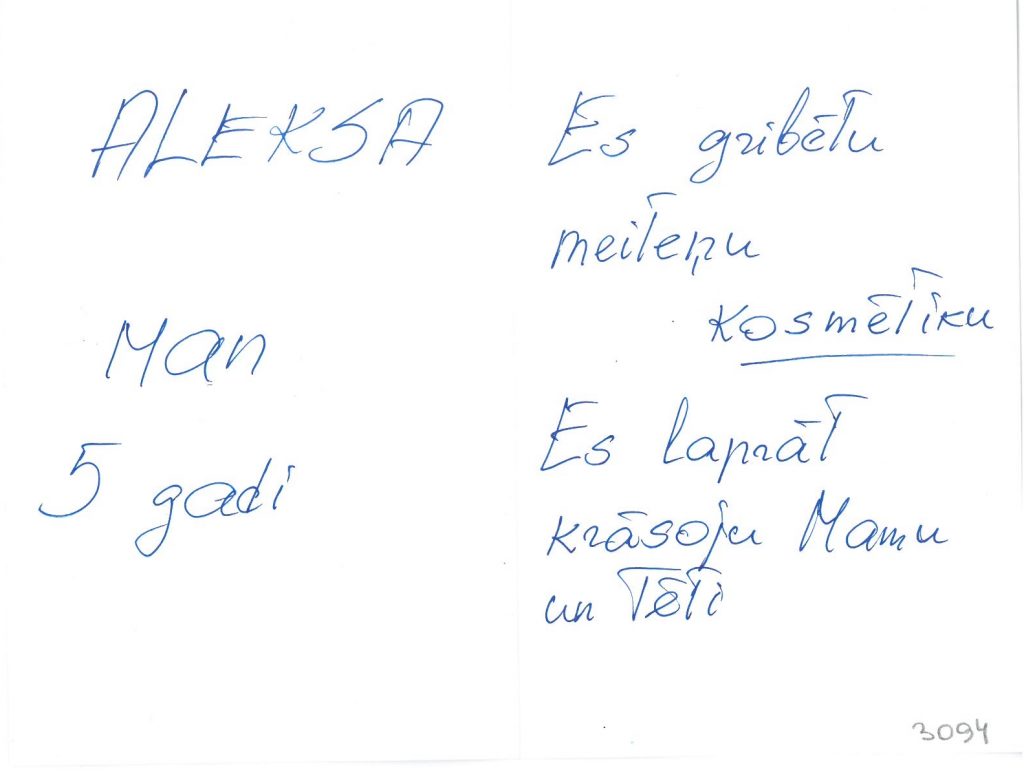 ALEKSA
Man
5 gadi
Es gribētu
meiteņu
kosmētiku
Es laprāt
krāsoju Mamu
un Tēti
3094